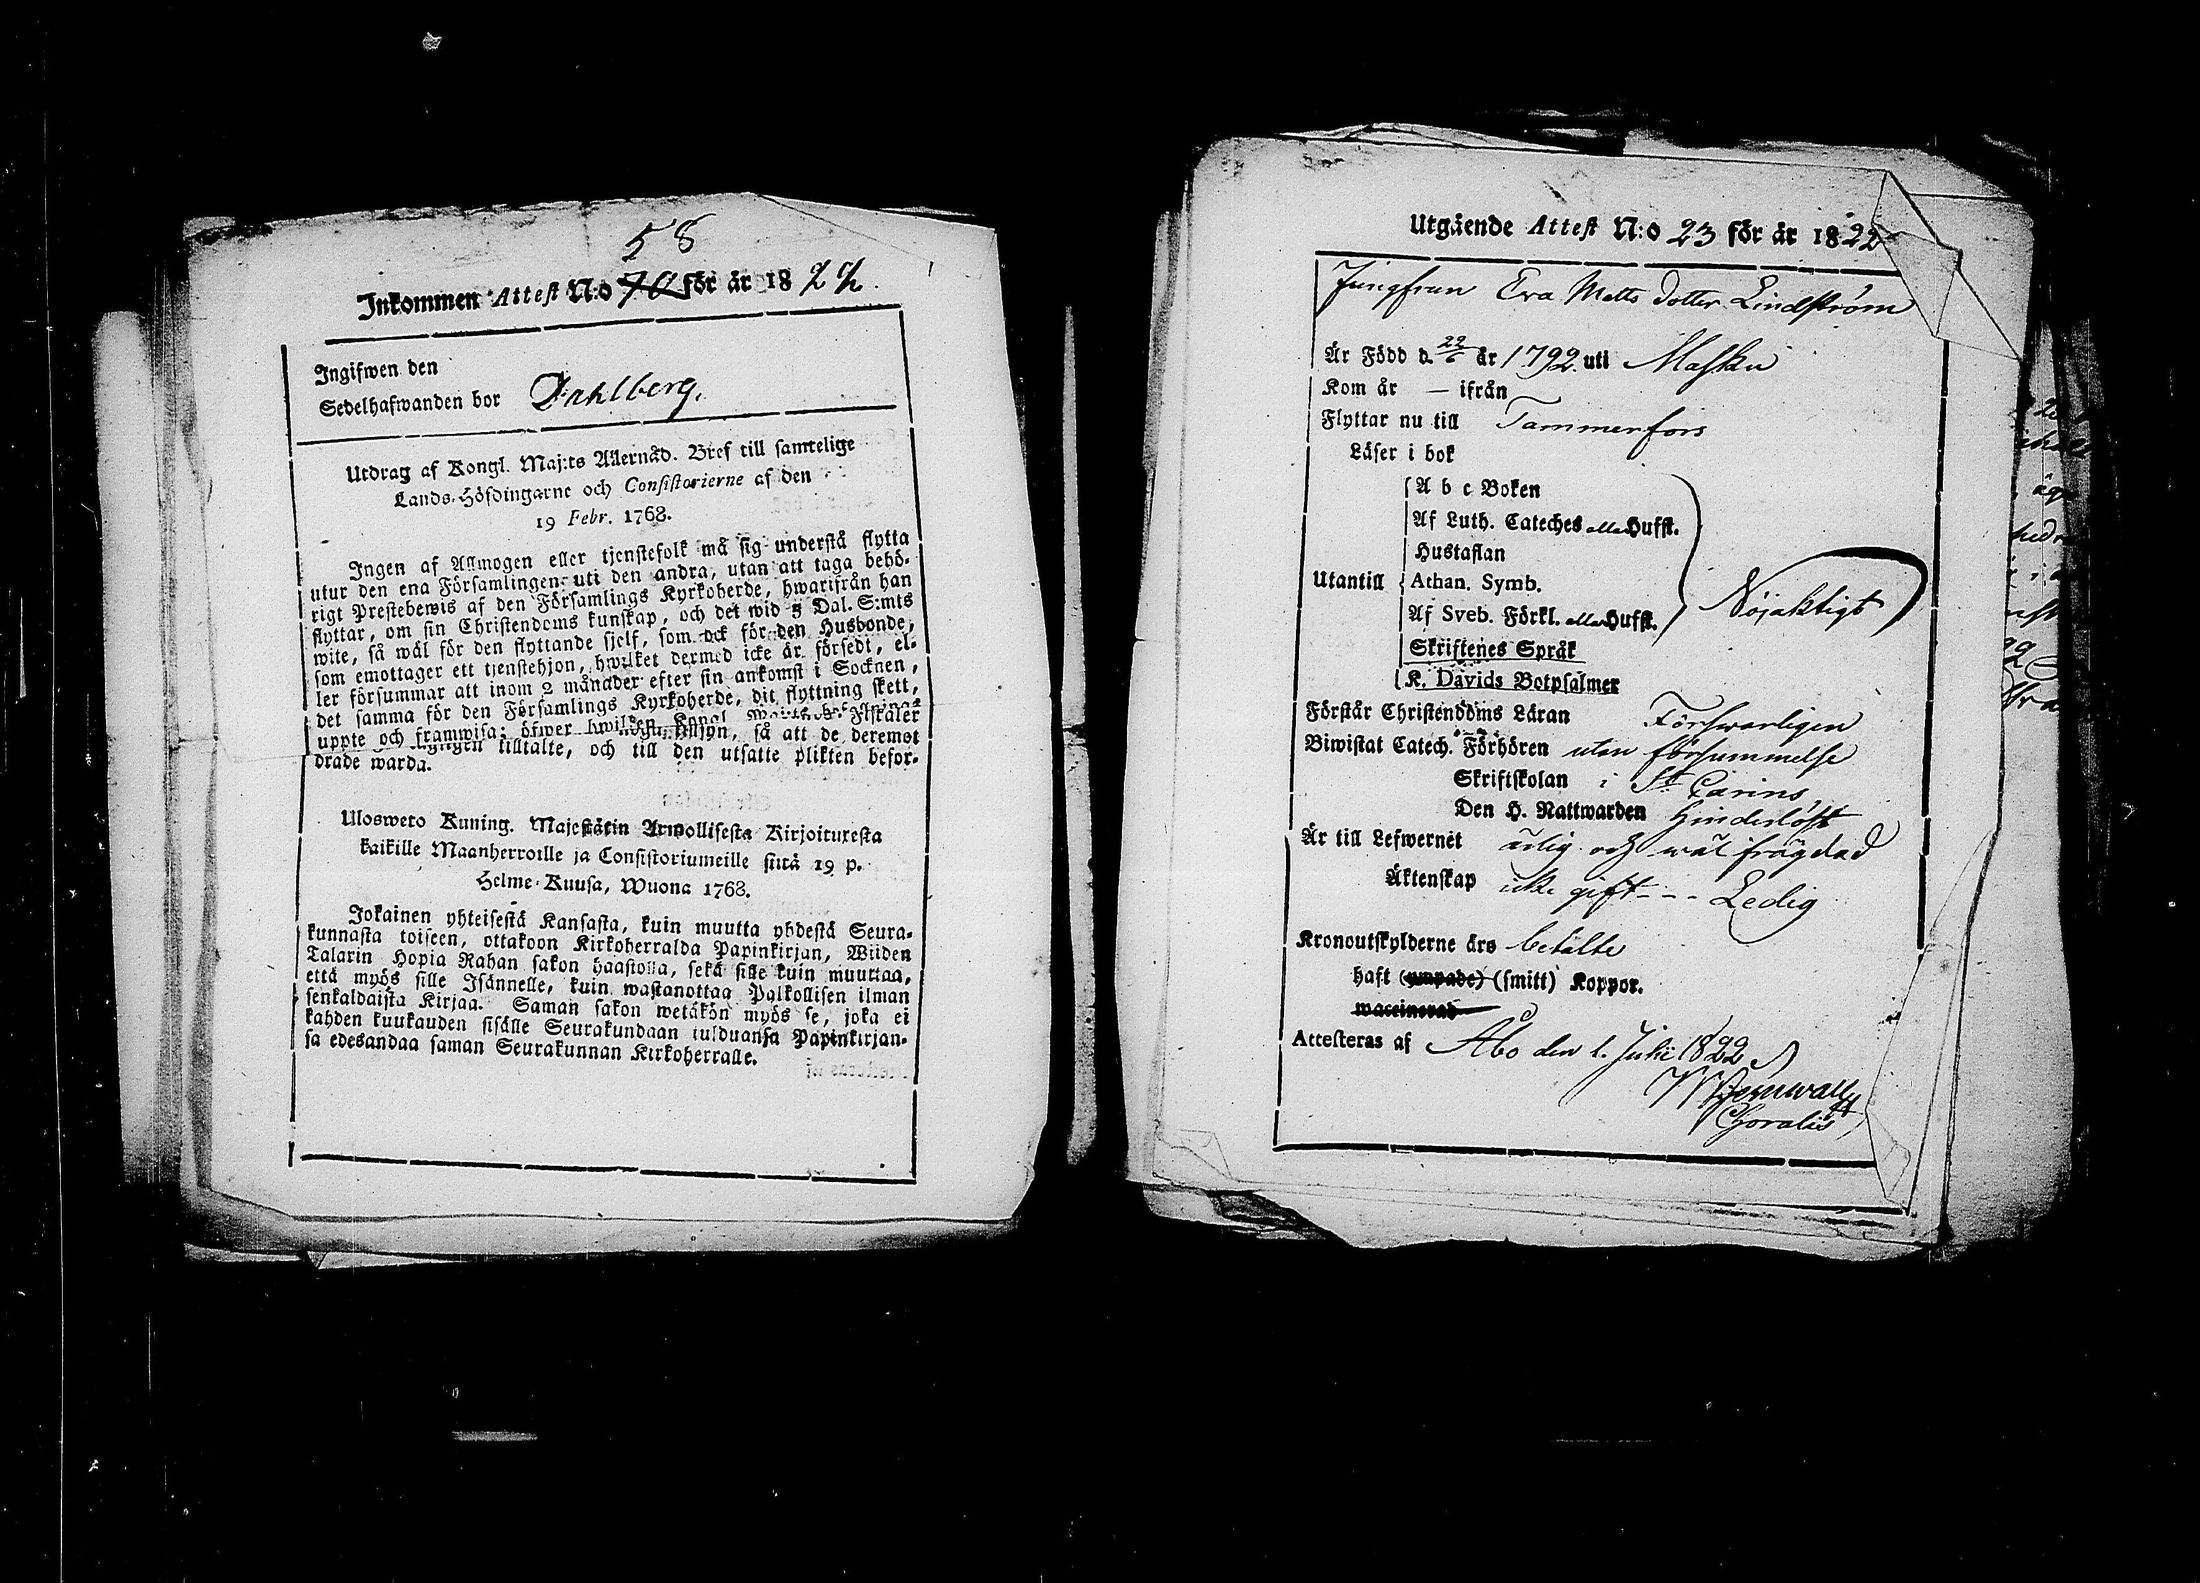 58
Inkommen Attest N:o 70 för år 1822.
Ingifwen den
Sedelhafwanden bor Dahlberg.
Utdrag af Kongl. Maj:ts Allernåd. Bref till samtelige
Lands-Höfdingarne och Consistorierne af den
19 Febr. 1768.
Ingen af Allmogen eller tjenstefolk må sig understå flytta
utur den ena Församlingen uti den andra, utan att taga behö-
rigt Prestebewis af den Församlings Kyrkoherde, hwarifrån han
flyttar, om sin Christendoms kunskap, och det wid 5 Dal. S:mts
wite, så wäl för den flyttande sjelf, som ock för den Husbonde,
som emottager ett tjenstehjon, hwilket dermed icke är försedt, el-
ler försummar att inom 2 månader efter sin ankomst i Socknen,
det samma för den Församlings Kyrkoherde, dit flyttning skett,
uppte och framwisa; öfwer hwilken Kongl. Fiskaler
tilsyn, så att de deremot
tilltalte, och till den utsatte plikten befor-
drade warda.
Ulosweto Kuning. Majestätin Armollisesta Kirjoituxesta
kaikille Maanherroille ja Consistoriumeille siitä 19 p.
Helme-Kuusa, Wuona 1768.
Jokainen yhteisestä Kansasta, kuin muutta yhdestä Seura-
kunnasta toiseen, ottakoon Kirkoherralda Papinkirjan, Wiiden
Talarin Hopia Rahan sakon haastolla, sekä sille kuin muuttaa,
että myös sille Isännelle, kuin wastanottaa Palkollisen ilman
senkaldaista Kirjaa. Saman sakon wetäkön myös se, joka ei
kahden kuukauden sisälle Seurakundaan tulduansa Papinkirjan-
sa edesandaa saman Seurakunnan Kirkoherralle.
Utgående Attest N:o 23 för år 1822
Jungfrun Eva Matts dotter Lindström
Är Född d. 22/6 år 1792 uti Masku
Kom år — ifrån
Flyttar nu till Tammerfors
Läser i bok
A b c Boken
Af Luth. Cateches alla Hufst.
Hustaflan
Utantill Athan. Symb.
Af Sveb. Förkl. alla Hufst. Nöjaktigt
Skriftenes Språk
K. Davids Botpsalmer
Förstår Christendoms Läran Försvarligen
Biwistat Catech. Förhören utan försummelse
Skriftskolan i St Carins
Den H. Nattwarden hinderlöst
Är till Lefwernet ärlig och wäl frägdad
Äktenskap icke gift - - - Ledig
Kronoutskylderne äro betalte
haft (ympade) (smitt) Koppor.
waccinerad
Attesteras af Åbo den 1. Julii 1822